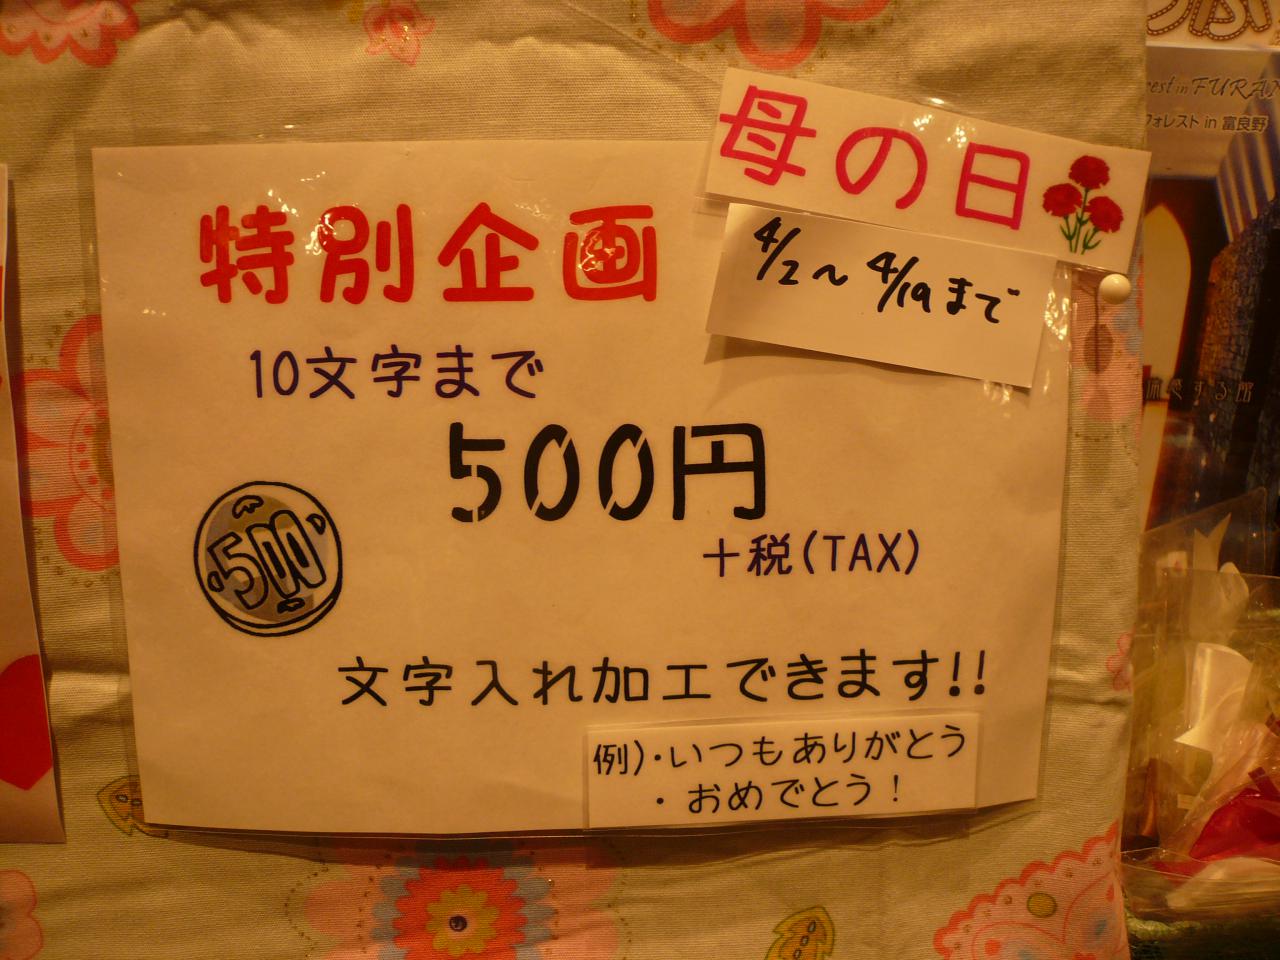 母の日
4/2～4/19まで
特別企画
10文字まで
500円
+税(TAX)
500
文字入れ加工できます!!
例)・いつもありがとう
・おめでとう！
rest in FURAN
フォレスト in 富良野